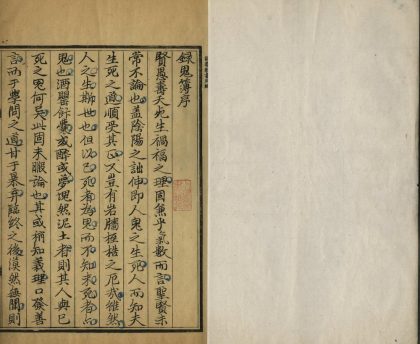 録鬼簿序
賢愚壽夭死生禍福之理固兼乎氣數而言聖賢未
嘗不論也盖陰陽之詘伸即人鬼之生死人而知夫
生死之道順受其正又豈有岩牆桎梏之厄哉雖然
人之生斯世也但以已死者為鬼而不知未死者亦
鬼也酒罌飯囊或醉或夢塊然泥土者則其人與已
死之鬼何異此固未暇論也其或稍知義理口發善
言而于學問之道甘于暴弃臨終之後漠然無聞則